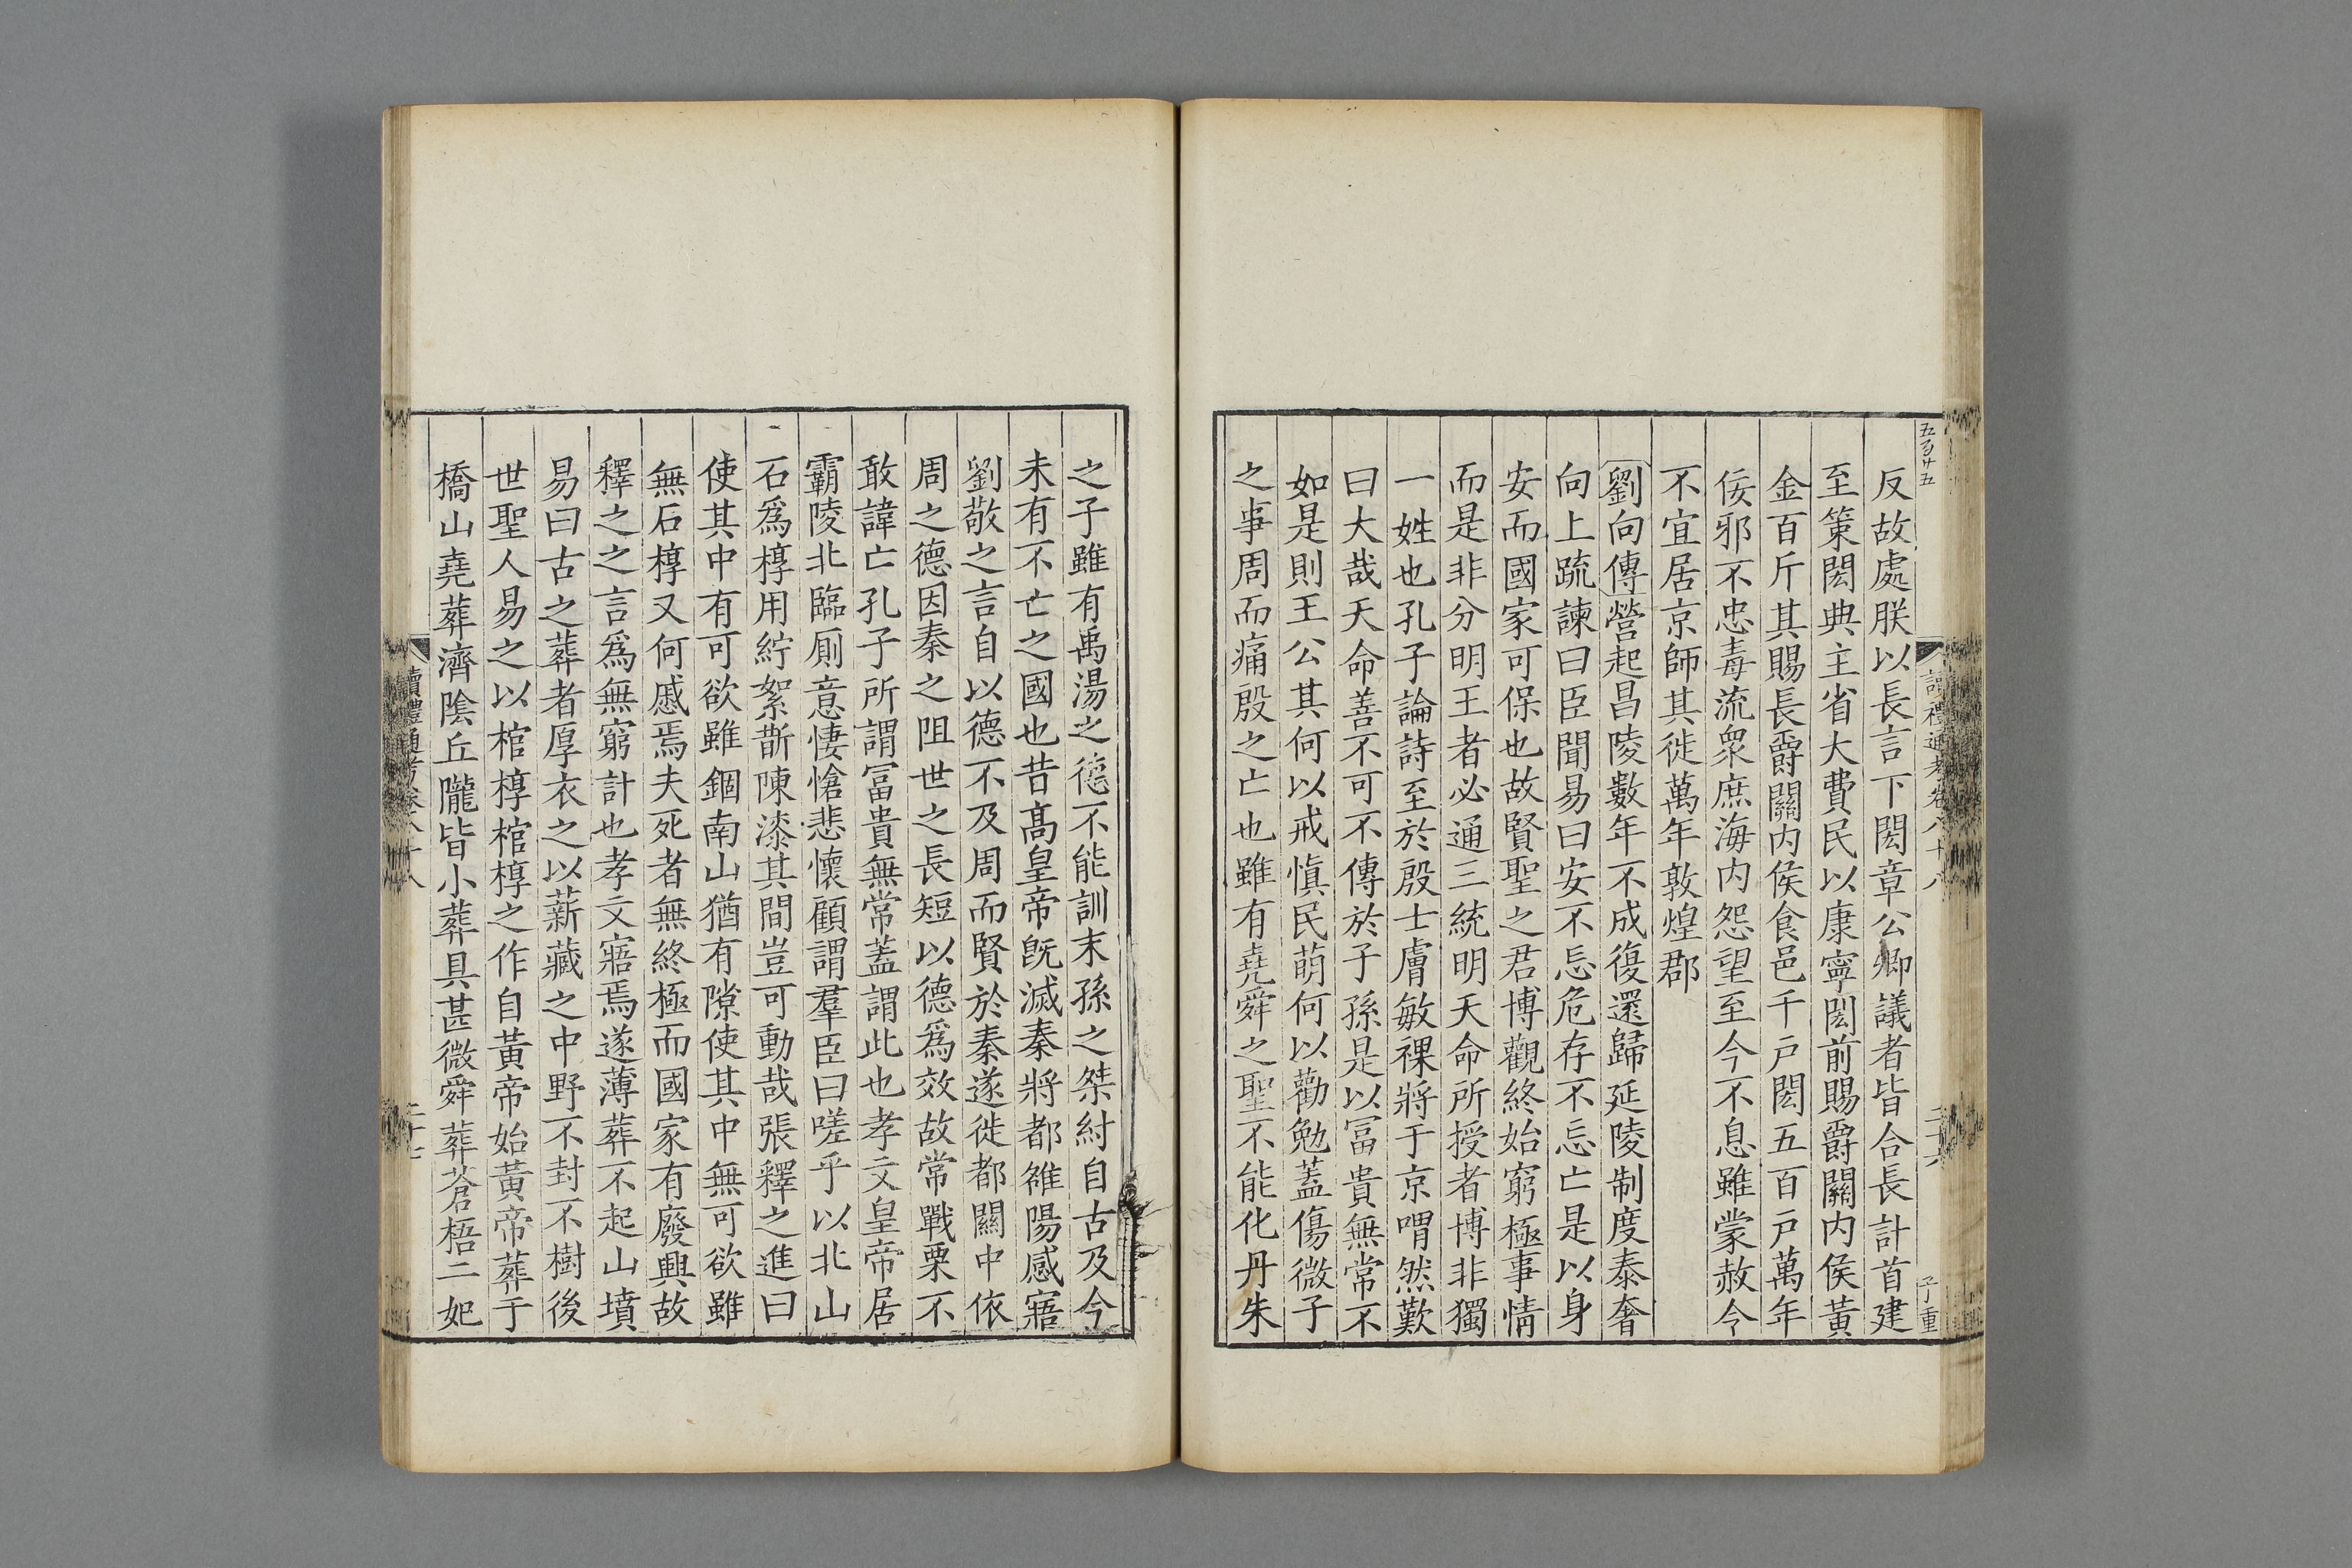 五百廿五
讀禮通考卷八十八
二十六
子重
反故處朕以長言下閎章公卿議者皆合長計首建
至策閎典主省大費民以康寧閎前賜爵關内侯黃
金百斤其賜長爵關内侯食邑千戸閎五百戸萬年
佞邪不忠毒流衆庶海内怨望至今不息雖蒙赦令
不宜居京師其徙萬年敦煌郡
劉向傳營起昌陵數年不成復還歸延陵制度泰奢
向上疏諫曰臣聞易曰安不忘危存不忘亡是以身
安而國家可保也故賢聖之君博觀終始窮極事情
而是非分明王者必通三統明天命所授者博非獨
一姓也孔子論詩至於殷士膚敏祼將于京喟然歎
曰大哉天命善不可不傳於子孫是以冨貴無常不
如是則王公其何以戒愼民萌何以勸勉蓋傷微子
之事周而痛殷之亡也雖有堯舜之聖不能化丹朱
之子雖有禹湯之德不能訓末孫之桀紂自古及今
未有不亡之國也昔髙皇帝旣滅秦將都雒陽感寤
劉敬之言自以德不及周而賢於秦遂徙都關中依
周之德因秦之阻世之長短以德爲效故常戰栗不
敢諱亡孔子所謂冨貴無常蓋謂此也孝文皇帝居
霸陵北臨厠意悽愴悲懷顧謂羣臣曰嗟乎以北山
石爲椁用紵絮斮陳漆其間豈可動哉張釋之進曰
使其中有可欲雖錮南山猶有隙使其中無可欲雖
無石椁又何慼焉夫死者無終極而國家有廢興故
釋之之言爲無窮計也孝文寤焉遂薄葬不起山墳
易曰古之葬者厚衣之以薪藏之中野不封不樹後
世聖人易之以棺椁棺椁之作自黃帝始黃帝葬于
橋山堯葬濟陰丘隴皆小葬具甚微舜葬蒼梧二妃
讀禮通考卷八十八
二十七